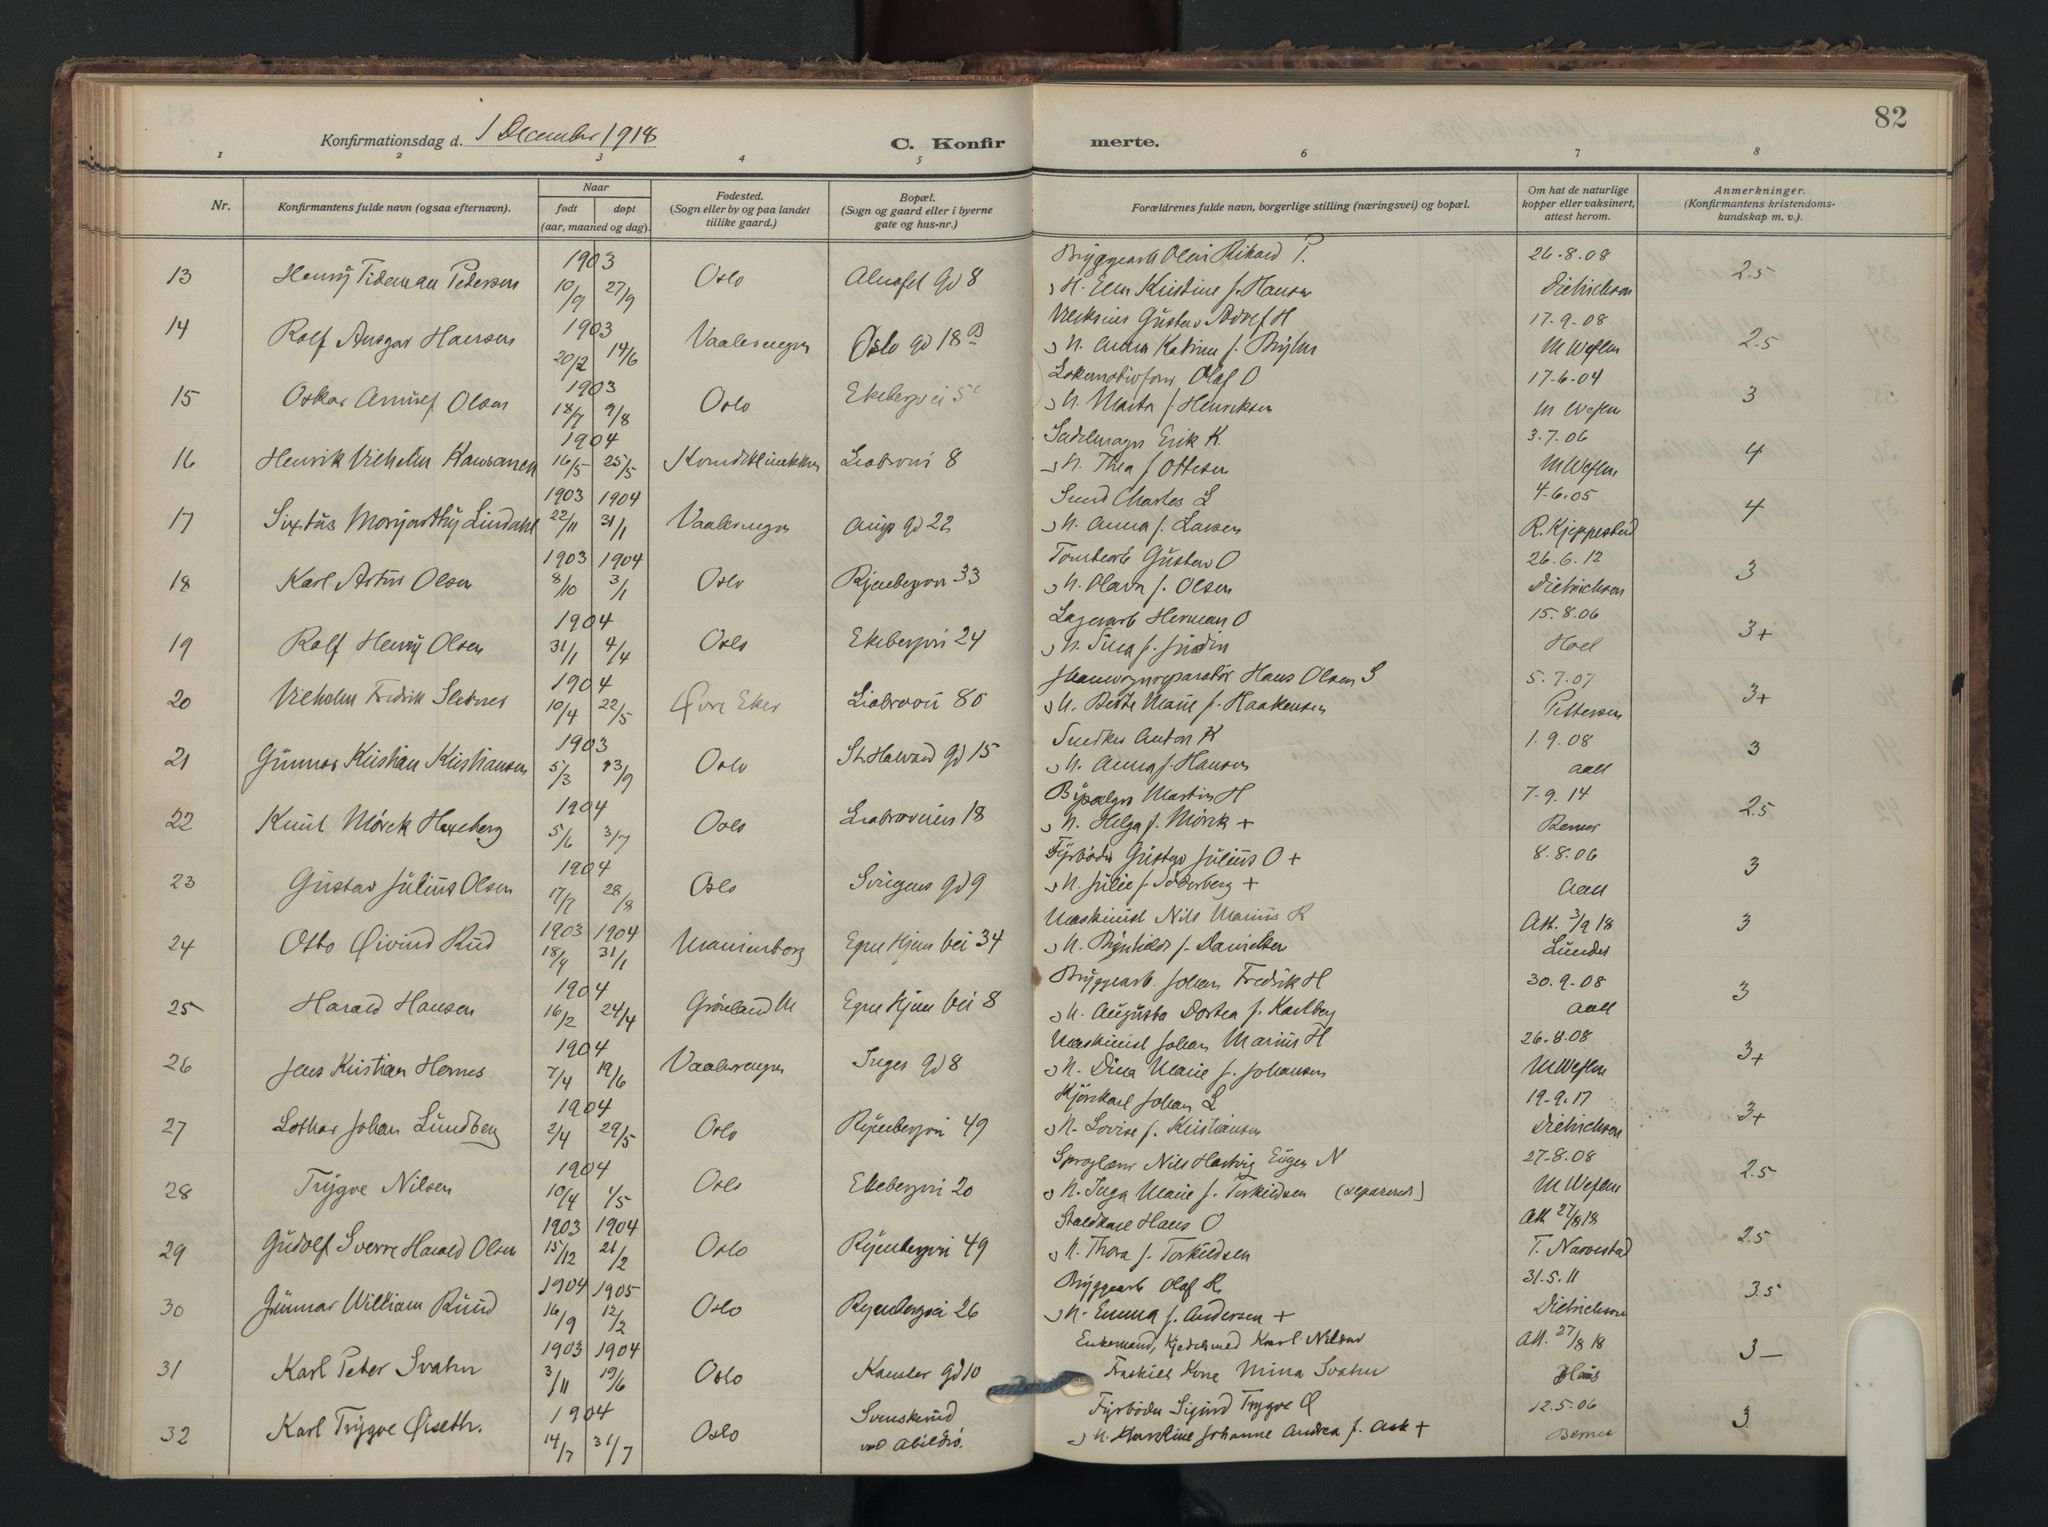 82
Konfirmationsdag d. 1 December 1918
C. Konfirmerte.
1 2 3 4 5 6 7 8
Nr.
Konfirmantens fulde navn (ogsaa efternavn).
Naar
født døpt
(aar, maaned og dag).
Fødested.
(Sogn eller by og paa landet
tillike gaard.)
Bopæl.
(Sogn og gaard eller i byerne
gate og hus-nr.)
Forældrenes fulde navn, borgerlige stilling (næringsvei) og bopæl.
Om hat de naturlige
kopper eller vaksinert,
attest herom.
Anmerkninger.
(Konfirmantens kristendoms-
kundskap m. v.).
1903 Bryggearb Olai Rikard P. 26.8.08
13 Henry Tideman Pedersen 10/9 27/9 Oslo Alnafet gd 8 H. Elen Kristine f. Hansen Dietrichson 2.5
1903 Gustav Adolf H 17-9-08
14 Rolf Ansgar Hansen 20/2 14/6 Vaalerengen Oslo gd 18B H. Anna Katrine f. M Weflen 2.5
1903 Olaf O 17-6-04
15 Oskar Olsen 18/7 9/8 Oslo Ekebergvei H. Marta f. Henriksen M Weflen 3
1904 Sadelmager Erik K. 3.7.06
16 Henrik Vilhelm 16/5 25/5 8 H. Thea f Ottesen M Weflen 4
1903 1904 Smed Charles L 4-6.05
17 Sixtus Lindahl 22/11 31/1 Vaalerengen gd 22 H. Anna f. Larsen R. Kjeppestad 4
1903 1904 Tomtearb Gustav O 26.6.12
18 Karl Artur Olsen 8/10 3/1 Oslo Ryenbergvei 33 H. Olava f. Olsen Dietrichson 3
1904 Lagerarb Herman O 15.8.06
19 Rolf Henry Olsen 31/1 4/4 Oslo Ekebergvei 24 Hoel 3+
1904 Hans Olsen S 5.7.07
20 Vilhelm Fredrik 10/4 22/5 Øvre Eker 80 H. Marie f. Haakensen Pettersen 3+
1903 Snedker Anton K 1.9.08
21 Gunnar Kristian Kristiansen 5/3 13/9 Oslo St. Halvard gd 15 H. Anna f. Hansen Aall 3
1904 Martin H 7-9.14
22 Knut Mørck Haxeberg 5/6 3/7 Oslo 18 H. Helga f. Mørck + 2.5
1904 Fyrbøder Gustav Julius O + 8.8.06
23 Gustav Julius Olsen 17/7 28/8 Oslo Sverigens gd 9 H. Julie f. Söderberg + Aall 3
1903 1904 Maskinist Nils Marius R Att. 3/9 18
24 Otto Øivind Rud 18/9 31/1 Marienborg Egne Hjem vei 34 H. Bryhilde f. Danielsen Lunder 3
1904 Bryggearb. Johan Fredrik H 30.9-08
25 Harald Hansen 16/2 24/4 Grønland M Egne Hjem vei 8 H. Augusta Dortea f. Karlberg Aall 3
1904 Maskinist Johan Marius H 26.8.08
26 Jens Kristian Hernes 7/4 19/6 Vaalerengen Inges gd 8 H. Dina Marie f. Johansen M Weflen 3+
1904 Kjørekarl Johan L 19.9.17
27 Lothar Johan Lundberg 2/4 29/5 Oslo Ryenbergvei 49 H. Lovise f. Kristiansen Dietrichson 3+
1904 Sproglærer Nils Hartvig Eugen N 27-8.08
28 Trygve Nilsen 10/4 1/5 Oslo Ekebergvei 20 H. Inga Marie f. Torkildsen (separeret) M Weflen 2.5
1903 1904 Staldkarl Hans O Att 27/8 18
29 Gudolf Sverre Harald Olsen 15/12 21/2 Oslo Ryenbergvei 49 H. Thora f. Torkildsen T. Narvestad 2.5
1904 1905 Bryggearb Olaf R. 31.5.11
30 Gunnar William Ruud 16/9 12/2 Oslo Ryenbergvei 26 H. Emma f. Andersen + Dietrichson 3.5
1903 1904 Enkemand, Kjedelsmed Karl Nilsen Att. 27/8 18
31 Karl Peter Svahn 3/11 19/6 Oslo Kansler gd 10 Fraskilt Kone Mina Svahn 3 —
1904 Svenskerud Fyrbøder Sigurd Trygve Ø 12.5.06
32 Karl Trygve Øiseth. 14/7 31/7 Oslo ved Abildsø. H. Johanne Andrea f. Ask + 3